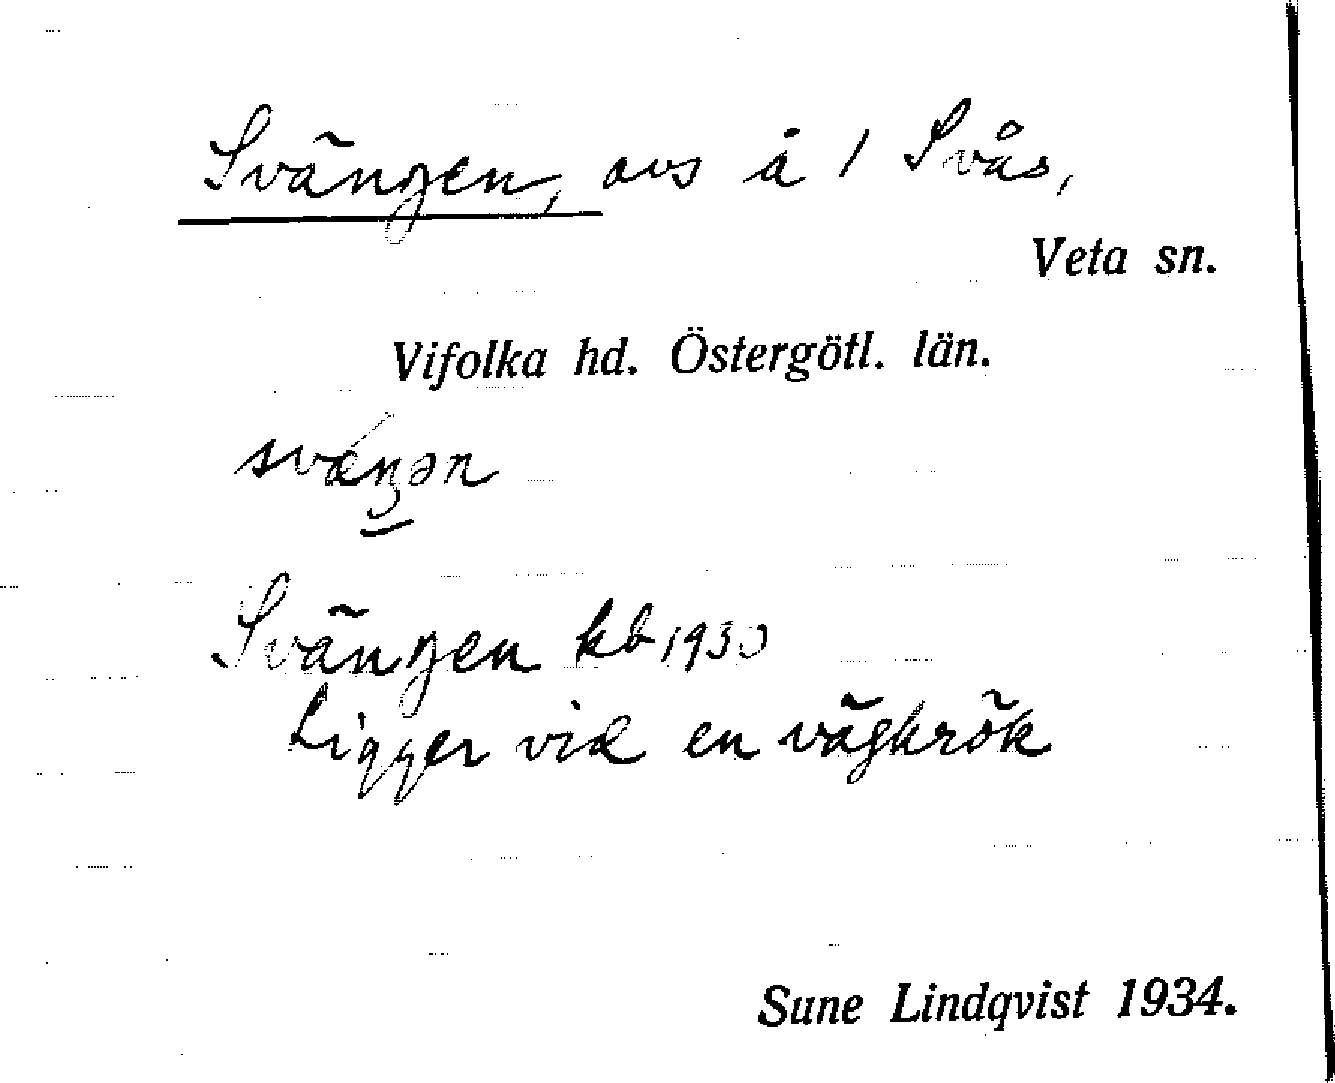 Svängen, avs å 1 Svås,
Veta sn.
Vifolka hd. Östergötl. län.
svæ´ŋən
Svängen kb 1930
Ligger vid en vägkrök
Sune Lindqvist 1934.